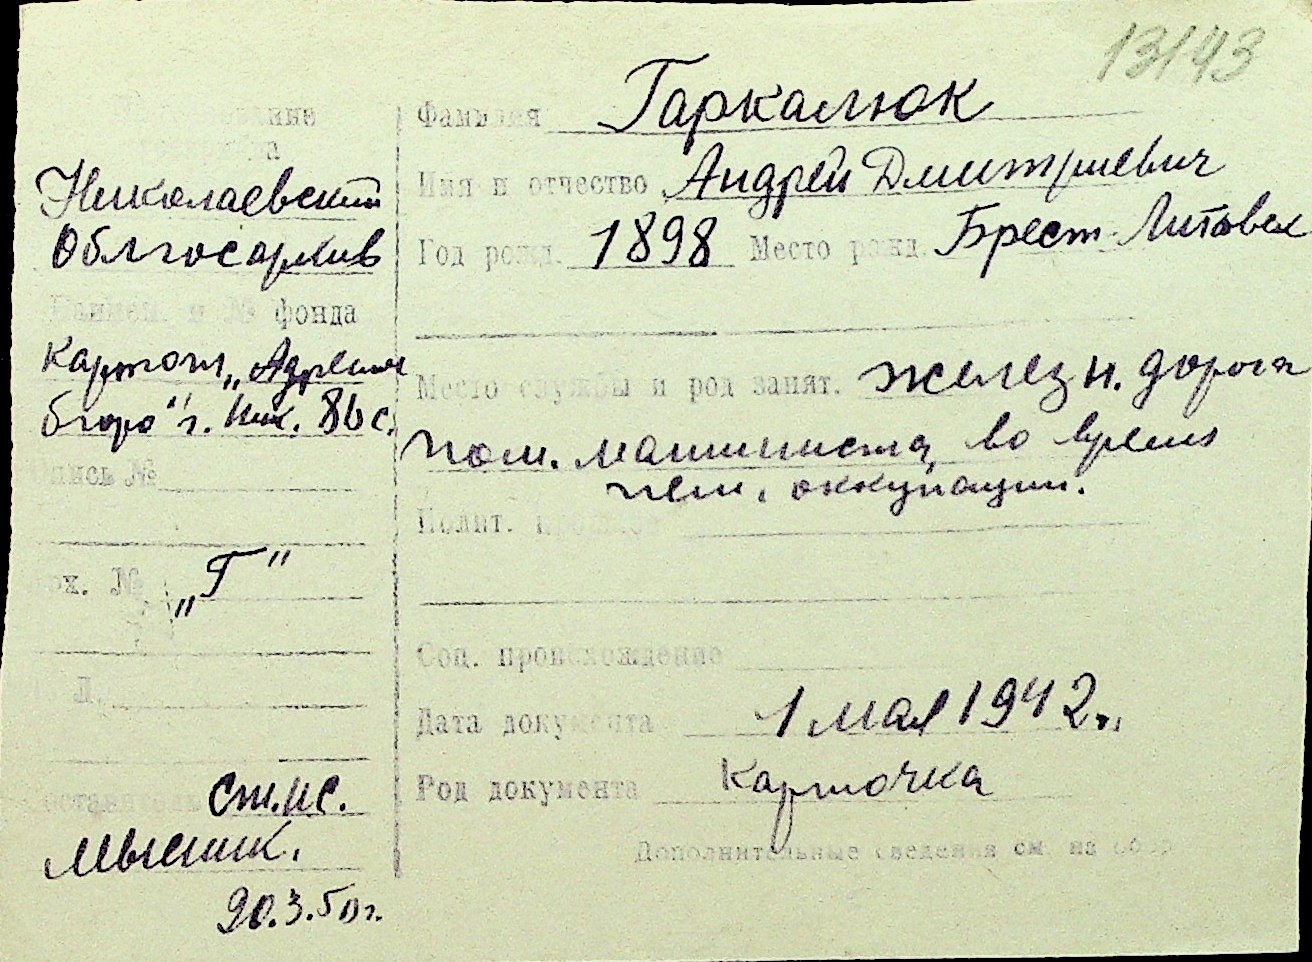 13143
Фамилия Гаркалюк
Имя и отчество Андрей Дмитриевич
Год рожд. 1898 Место рожд. Брест-Литовск
Место службы и род занят. железн. дорога
пом. машиниста, во время
нем. оккупации.
Полит. прошлое
Соц. происхождение
Дата документа 1 мая 1942 г.
Род документа Карточка
Дополнительные сведения см. на обор.
Николаевский
Облгосархив
Наимен. и № фонда
Картот. „Адресное
бюро" г. Ник.
Опись №
Арх. № „Г"
Л.
Составитель ст. н.с.
20.3.50 г.